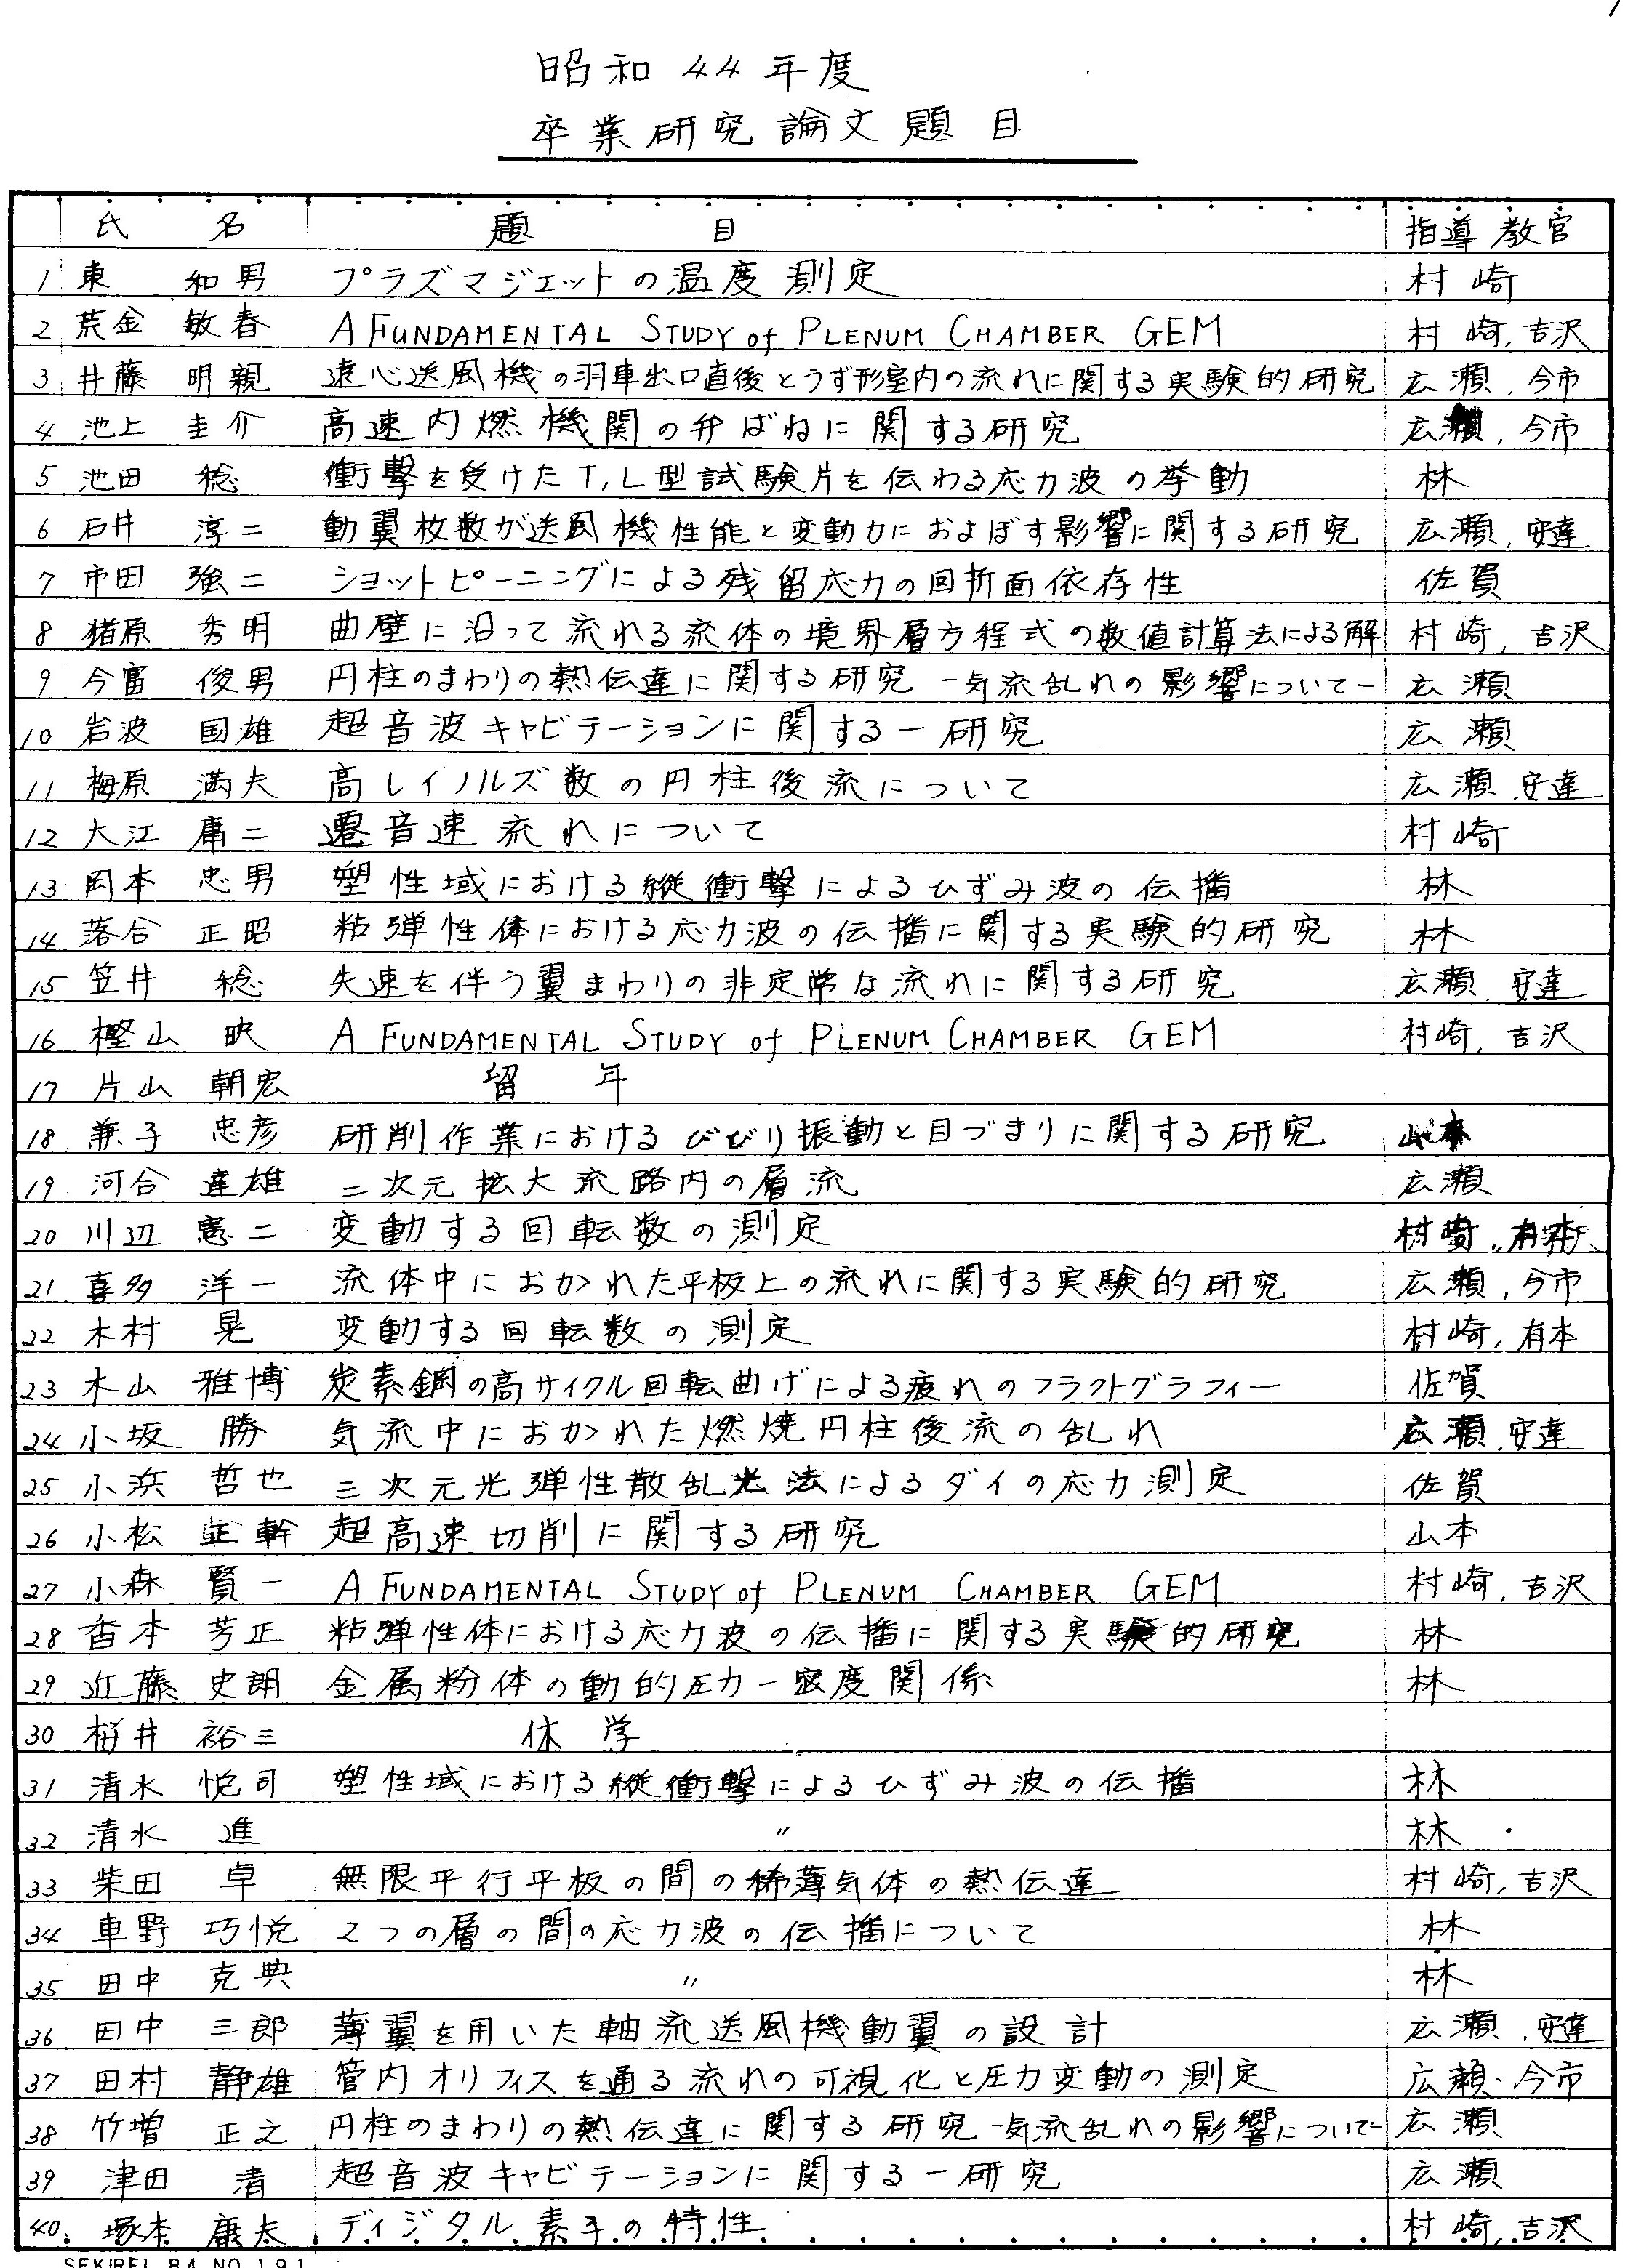 昭和44年度
卒業研究論文題目
氏名 題目 指導教官
1 東 和男 プラズマジェットの温度測定 村崎
2 荒金 敏春 A FUNDAMENTAL STUDY of PLENUM CHAMBER GEM 村崎, 吉沢
3 井藤 明親 遠心送風機の羽車出口直後とうず形室内の流れに関する実験的研究 広瀬, 今市
4 池上 圭介 高速内燃機関の弁ばねに関する研究 広瀬, 今市
5 池田 稔 衝撃を受けたT,L型試験片を伝わる応力波の挙動 林
6 石井 淳二 動翼枚数が送風機性能と変動力におよぼす影響に関する研究 広瀬, 安達
7 市田 強二 ショットピーニングによる残留応力の回折面依存性 佐賀
8 猪原 秀明 曲壁に沿って流れる流体の境界層方程式の数値計算法による解 村崎, 吉沢
9 今富 俊男 円柱のまわりの熱伝達に関する研究 ー気流乱れの影響についてー 広瀬
10 岩波 国雄 超音波キャビテーションに関する一研究 広瀬
11 梅原 満夫 高レイノルズ数の円柱後流について 広瀬 安達
12 大江 庸二 遷音速流れについて 村崎
13 岡本 忠男 塑性域における縦衝撃によるひずみ波の伝播 林
14 落合 正昭 粘弾性体における応力波の伝播に関する実験的研究 林
15 笠井 稔 失速を伴う翼まわりの非定常な流れに関する研究 広瀬 安達
16 樫山 映 A FUNDAMENTAL STUDY of PLENUM CHAMBER GEM 村崎, 吉沢
17 片山 朝宏 留年
18 兼子 忠彦 研削作業におけるびびり振動と目づまりに関する研究 山本
19 河合 達雄 二次元拡大流路内の層流 広瀬
20 川辺 憲二 変動する回転数の測定 村崎, 有本
21 喜多 洋一 流体中におかれた平板上の流れに関する実験的研究 広瀬, 今市
22 木村 晃 変動する回転数の測定 村崎, 有本
23 木山 雅博 炭素鋼の高サイクル回転曲げによる疲れのフラクトグラフィー 佐賀
24 小坂 勝 気流中におかれた燃焼円柱後流の乱れ 広瀬 安達
25 小浜 哲也 三次元光弾性散乱光法によるダイの応力測定 佐賀
26 小松 正幹 超高速切削に関する研究 山本
27 小森 賢一 A FUNDAMENTAL STUDY of PLENUM CHAMBER GEM 村崎, 吉沢
28 香本 芳正 粘弾性体における応力波の伝播に関する実験的研究 林
29 近藤 史朗 金属粉体の動的圧力ー密度関係 林
30 桜井 裕三 休学
31 清水 悦司 塑性域における縦衝撃によるひずみ波の伝播 林
32 清水 進 〃 林
33 柴田 卓 無限平行平板の間の稀薄気体の熱伝達 村崎, 吉沢
34 車野 巧悦 2つの層の間の応力波の伝播について 林
35 田中 克典 〃 林
36 田中 三郎 薄翼を用いた軸流送風機動翼の設計 広瀬, 安達
37 田村 静雄 管内オリフィスを通る流れの可視化と圧力変動の測定 広瀬・今市
38 竹増 正之 円柱のまわりの熱伝達に関する研究 ー気流乱れの影響についてー 広瀬
39 津田 清 超音波キャビテーションに関する一研究 広瀬
40 塚本 康夫 ディジタル素子の特性 村崎, 吉沢
SEKIREI B4 NO 191